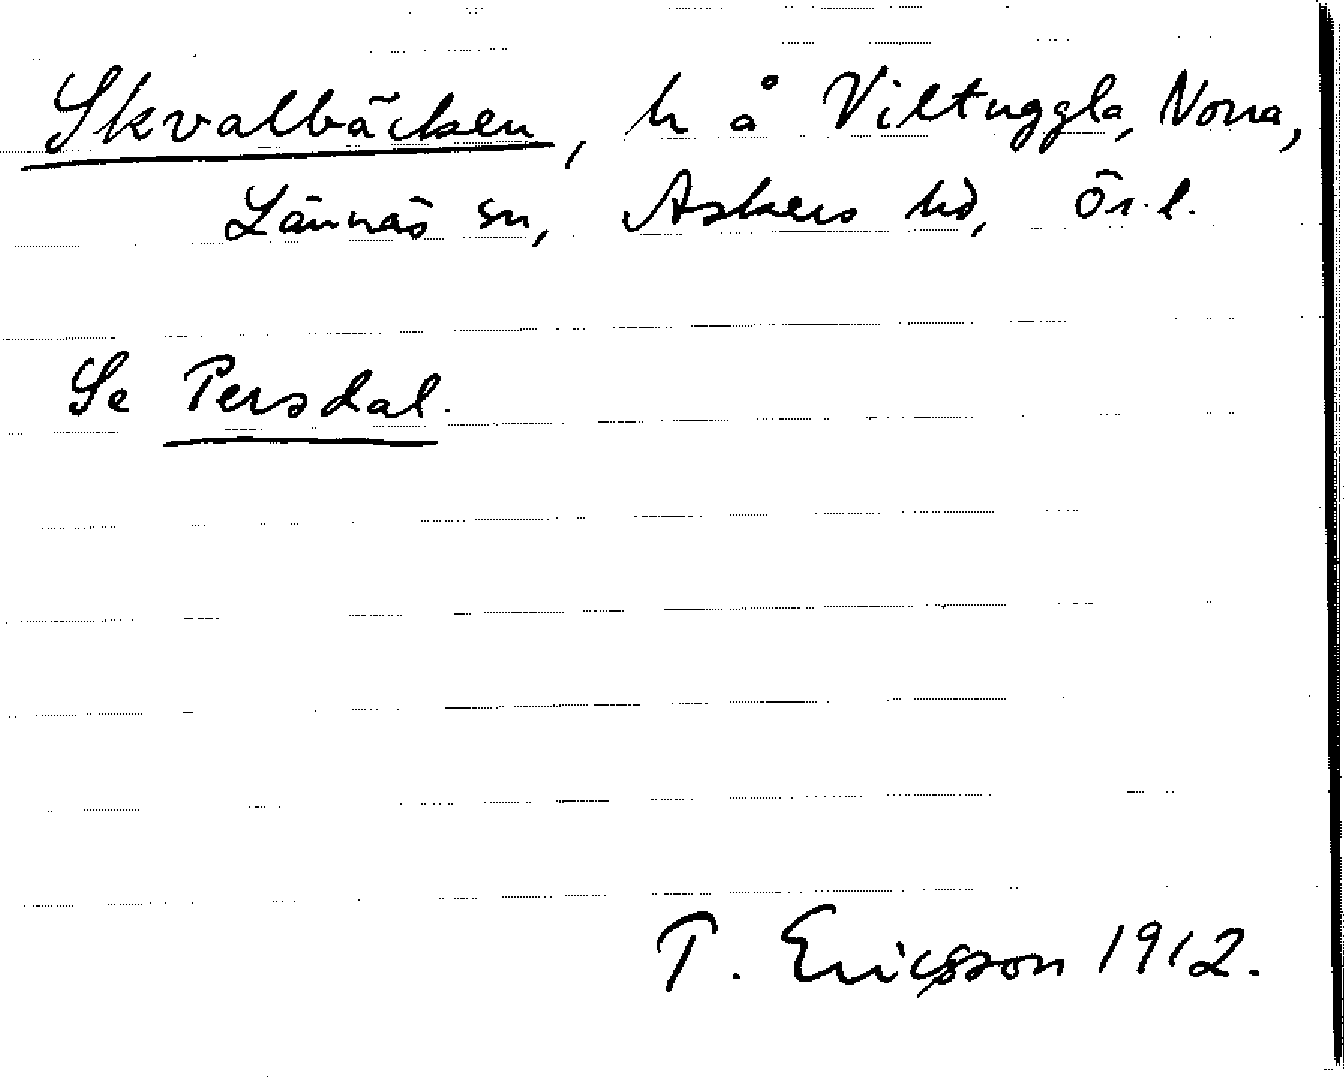 Skvalbäcken, h å Viltuggla, Norra,
Lännäs sn, Askers hd, Ör. l.
Se Persdal.
T. Ericsson 1912.